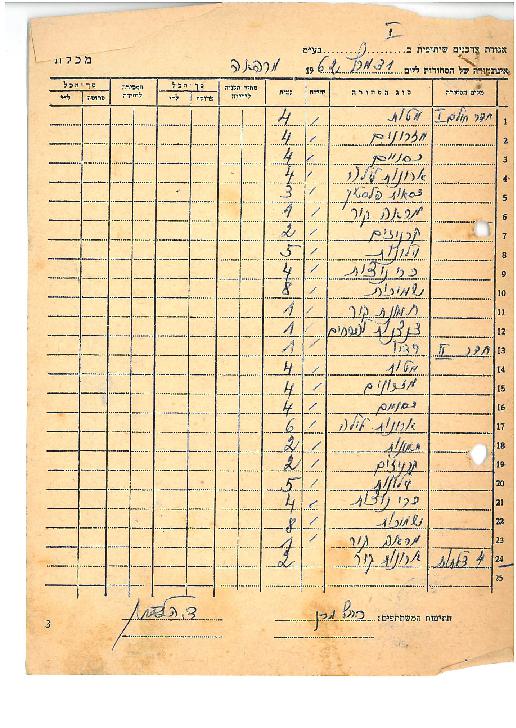 I
אגודת צרכנים שיתופית ב. בע״מ
מכלת
אינוינטורה של הסחורות ליום 19 62 מרפאה
מקום הסחורה סוג הסחורה יחידה כמות מחיר הקניה ליחידה סך־הכל פרוטה ל״י המכירה ליחידה סך־הכל פרוטה ל״י
1 חדר חולים I מטות / 4
2 מזרונים / 4
3 כסניים / 4
4 ארונות לילה / 4
5 כסאות פלסטיק / 3
6 מראה קיר / 1
7 קרניזים / 2
8 וילונות / 5
9 כרי נוצות / 4
10 שמיכות / 8
11 תמונת קיר / 1
12 / 1
13 חדר II / 1
14 מטות / 4
15 מזרונים / 4
16 כסניים / 4
17 ארונות לילה / 6
18 תמונות / 2
19 קרניזים / 2
20 וילונות / 5
21 כרי נוצות / 4
22 שמיכות / 8
23 מראה קיר / 1
24 4 דלתות ארונות קיר / 2
25
חתימות המשתתפים:
3